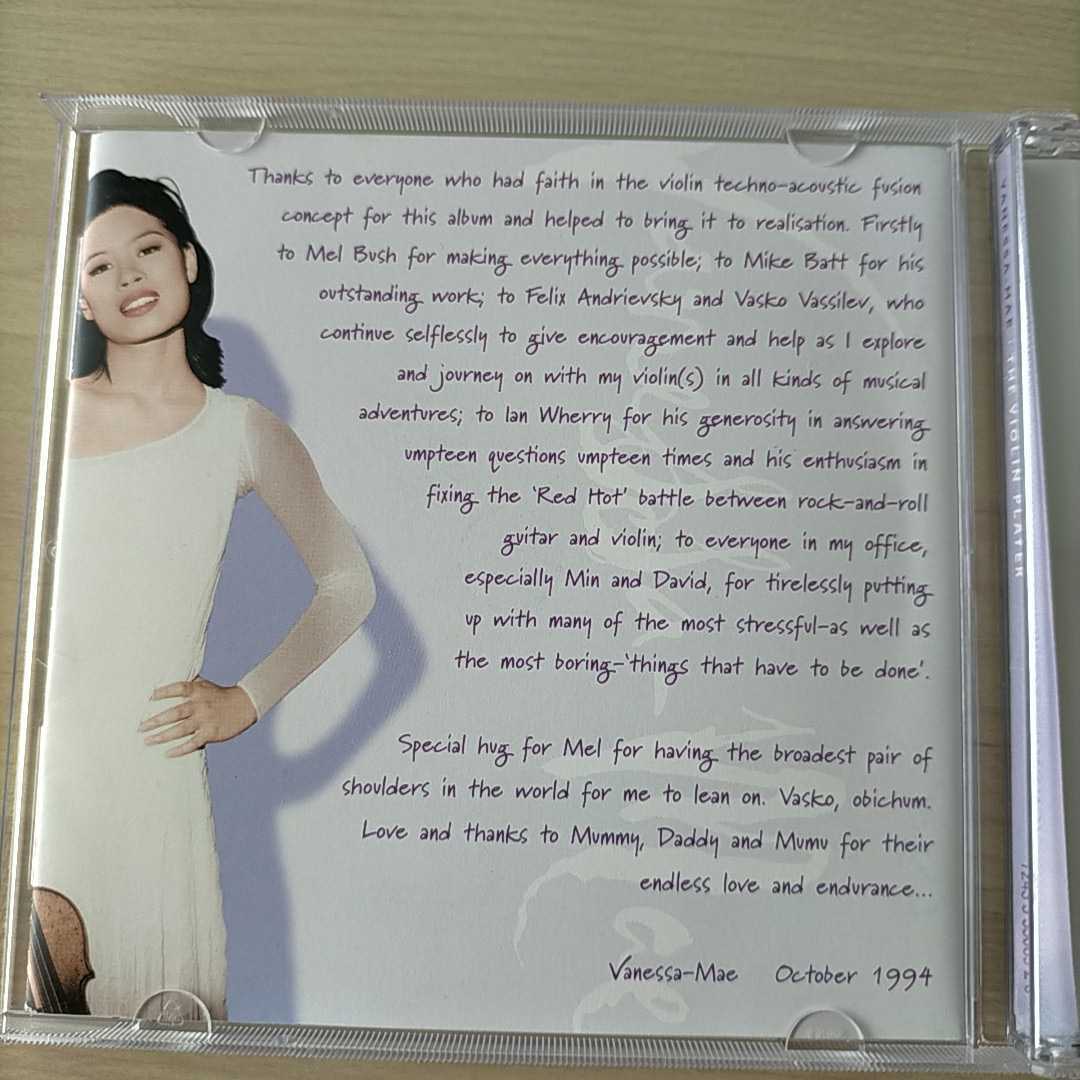 Thanks to everyone who had faith in the violin techno-acoustic fusion
concept for this album and helped to bring it to realisation. Firstly
to Mel Bush for making everything possible; to Mike Batt for his
outstanding work; to Felix Andrievsky and Vasko Vassilev, who
continue selflessly to give encouragement and help as I explore
and journey on with my violin(s) in all kinds of musical
adventures; to Ian Wherry for his generosity in answering
umpteen questions umpteen times and his enthusiasm in
fixing the 'Red Hot' battle between rock-and-roll
guitar and violin; to everyone in my office,
especially Min and David, for tirelessly putting
up with many of the most stressful-as well as
the most boring-'things that have to be done'.
Special hug for Mel for having the broadest pair of
shoulders in the world for me to lean on. Vasko, obichum.
Love and thanks to Mummy, Daddy and Mumu for their
endless love and endurance...
Vanessa-Mae October 1994
VANESSA-MAE THE VIOLIN PLAYER